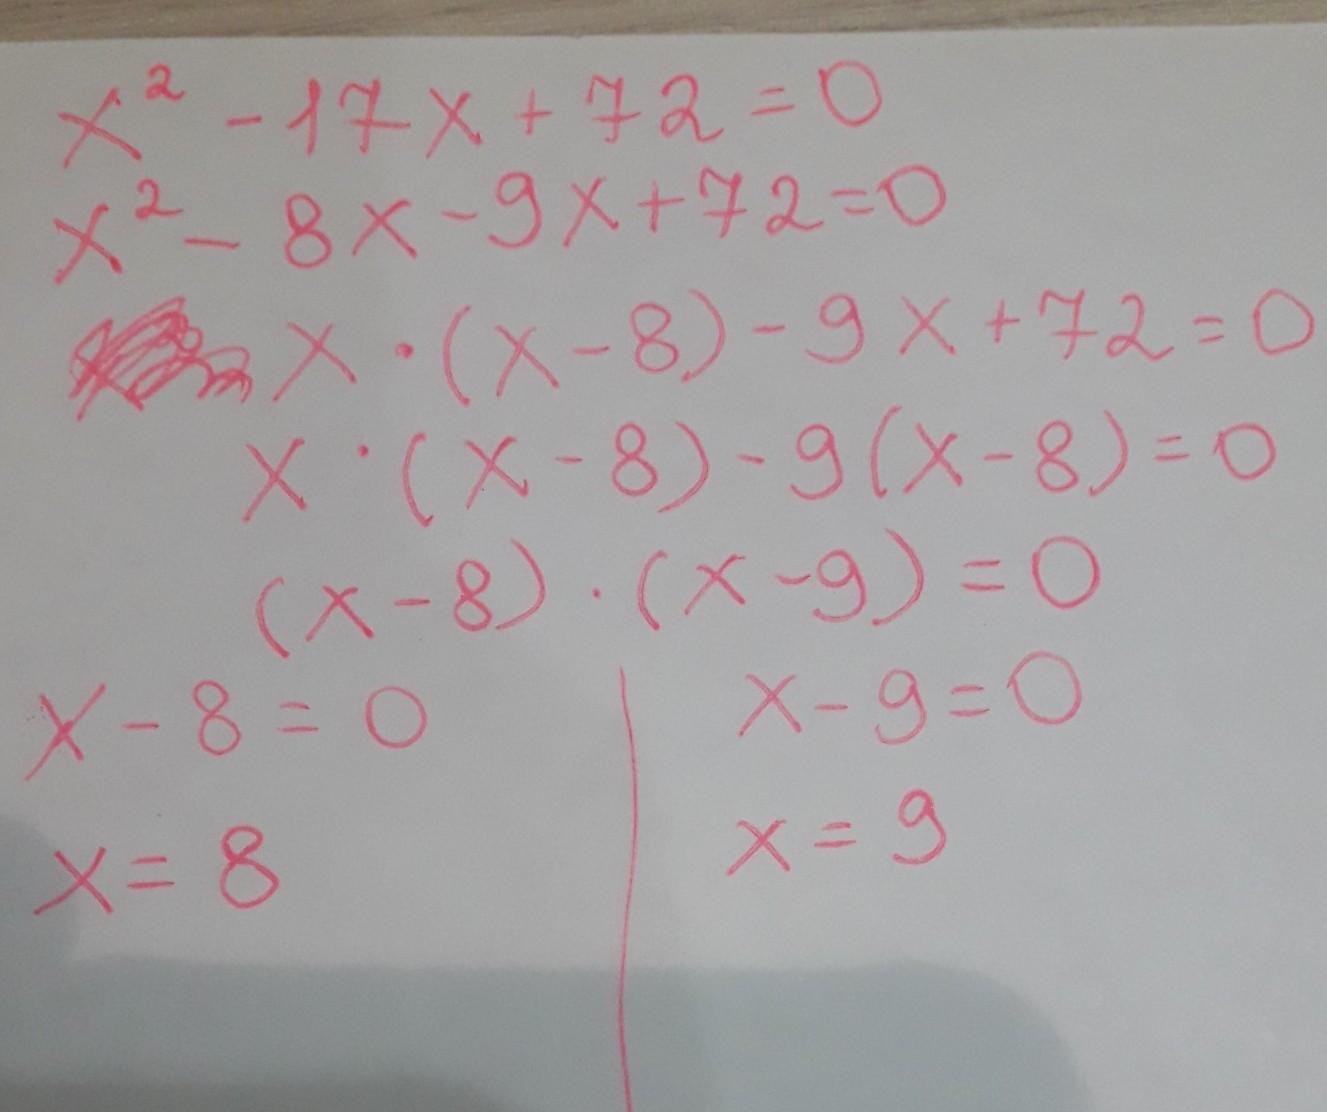 x² - 17x + 72 = 0
x² - 8x - 9x + 72 = 0
x · (x - 8) - 9x + 72 = 0
x · (x - 8) - 9(x - 8) = 0
(x - 8) · (x - 9) = 0
x - 8 = 0
x = 8
x - 9 = 0
x = 9